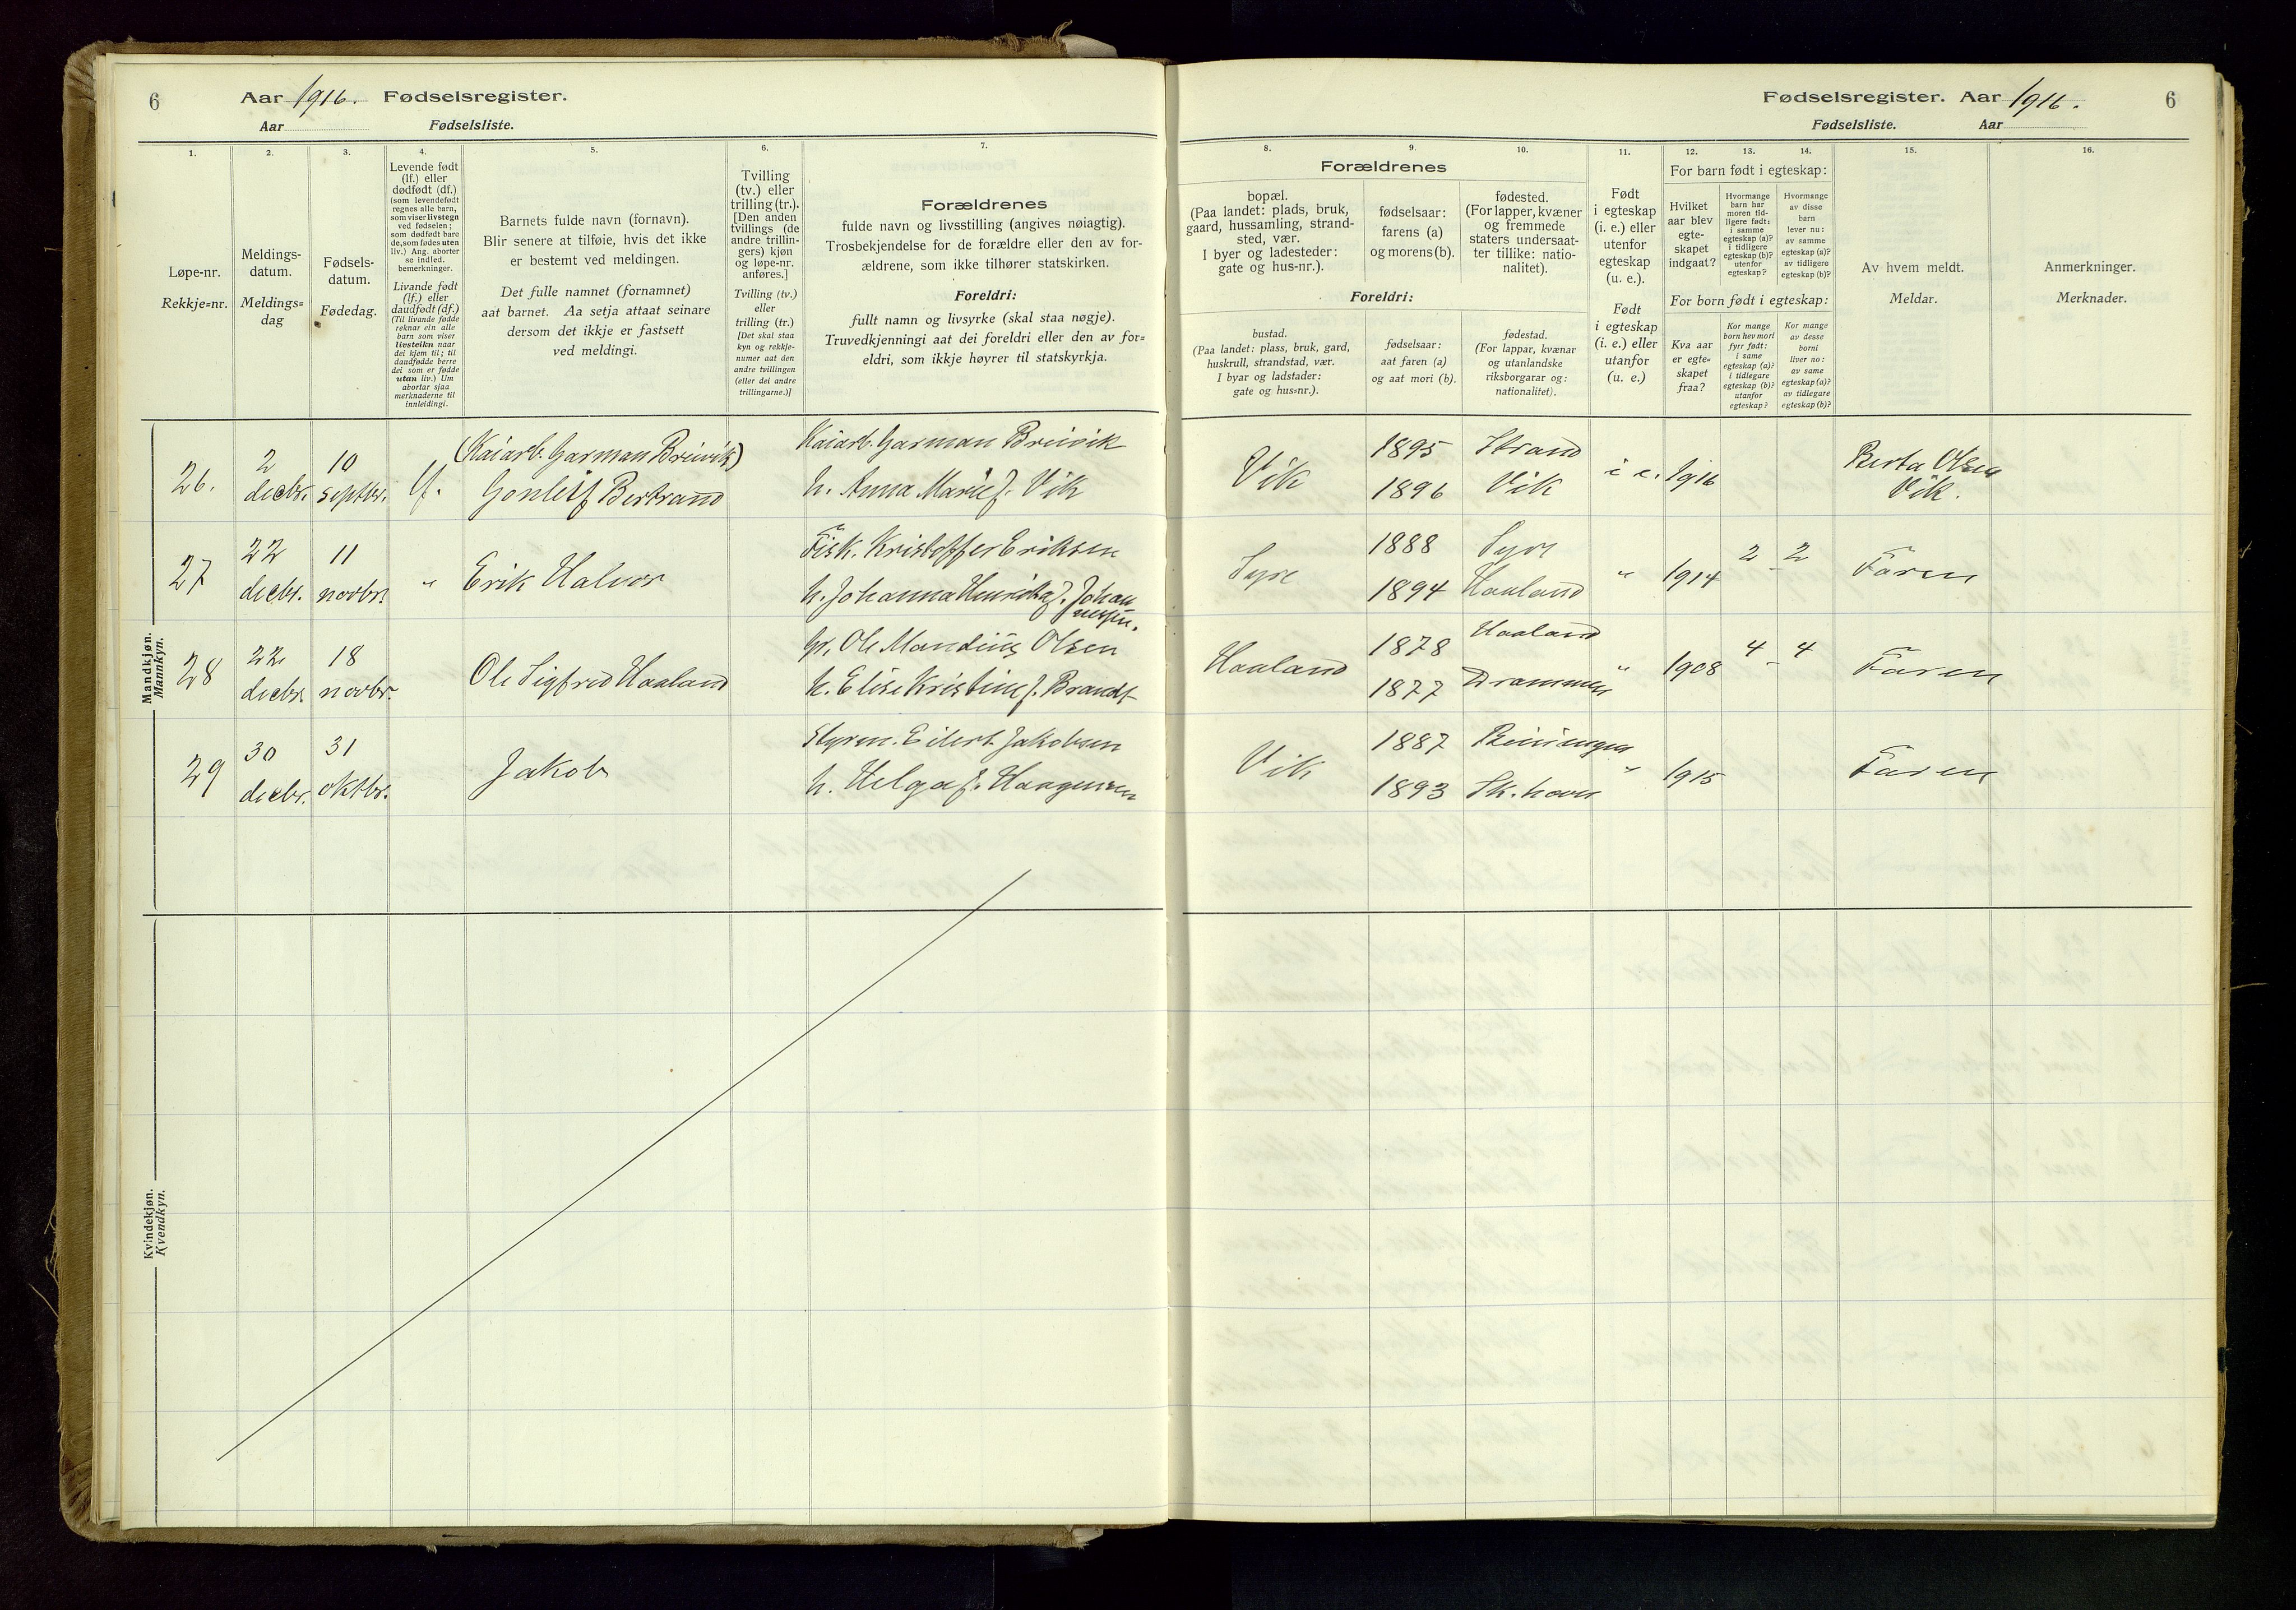 6
Aar 1916. Fødselsregister.
Aar Fødselsliste.
1.
Løpe-nr.
Rekkje=nr.
2.
Meldings-
datum.
Meldings=
dag
3.
Fødsels-
datum.
Fødedag.
4.
Levende født
(lf.) eller
dødfødt (df.)
(som levendefødt
regnes alle barn,
som viser livstegn
ved fødselen;
som dødfødt bare
de, som fødes uten
liv.) Ang. aborter
se indled.
bemerkninger.
Livande født
(lf.) eller
daudfødt (df.)
(Til livande fødde
reknar ein alle
barn som viser
livsteikn naar
dei kjem til; til
daudfødde berre
dei som er fødde
utan liv.) Um
abortar sjaa
merknaderne til
innleidingi.
5.
Barnets fulde navn (fornavn).
Blir senere at tilføie, hvis det ikke
er bestemt ved meldingen.
Det fulle namnet (fornamnet)
aat barnet. Aa setja attaat seinare
dersom det ikkje er fastsett
ved meldingi.
6.
Tvilling
(tv.) eller
trilling (tr.).
[Den anden
tvillings (de
andre trillin-
gers) kjøn
og løpe-nr.
anføres.]
Tvilling (tv.)
eller
trilling (tr.)
[Det skal staa
kyn og rekkje-
numer aat den
andre tvillingen
(eller dei andre
trillingarne.)]
7.
Forældrenes
fulde navn og livsstilling (angives nøiagtig).
Trosbekjendelse for de forældre eller den av for-
ældrene, som ikke tilhører statskirken.
Foreldri:
fullt namn og livsyrke (skal staa nøgje).
Truvedkjenningi aat dei foreldri eller den av for=
eldri, som ikkje høyrer til statskyrkja.
Mandkjøn.
Mannkyn.
26. 2 decbr. 10 septbr. lf. (Kaiarb. Garman Breivik)
Gonleif Bertrand
Kaiarb. Garman Breivik
h. Anna Marie f. Vik
27 22 decbr. 11 novbr. " Erik Halvor
Fisk. Kristoffer Eriksen
h. Johanna Henrikka f. Johan
nessen.
28 22 decbr. 18 novbr. Ole Sigfred Haaland
Ole Mandius Olsen
h. Elise Kristine f. Brandt
29 30 decbr. 31 oktbr. Jakob
Styrm. Eilert Jakobsen
h. Helga f. Haagensen
Kvindekjøn.
Kvendkyn.
Fødselsregister. Aar 1916.
6
Fødselsliste. Aar
8.
Forældrenes
bopæl.
(Paa landet: plads, bruk,
gaard, hussamling, strand-
sted, vær.
I byer og ladesteder:
gate og hus-nr.).
Foreldri:
bustad.
(Paa landet: plass, bruk, gard,
huskrull, strandstad, vær.
I byar og ladstader:
gate og hus=nr.).
9.
fødselsaar:
farens (a)
og morens (b).
fødselsaar:
aat faren (a)
og aat mori (b).
10.
fødested.
(For lapper, kvæner
og fremmede
staters undersaat-
ter tillike: natio-
nalitet).
fødestad.
(For lappar, kvænar
og utanlandske
riksborgarar og:
nationalitet).
11.
Født
i egteskap
(i. e.) eller
utenfor
egteskap
(u. e.).
Født
i egteskap
(i. e.) eller
utanfor
(u. e.)
12.
For barn født i egteskap:
Hvilket
aar blev
egte-
skapet
indgaat?
For born født i egteskap:
Kva aar
er egte=
skapet
fraa?
13.
Hvormange
barn har
moren tid-
ligere født:
i samme
egteskap (a)?
i tidligere
egteskap (b)?
utenfor
egteskap?
Kor mange
born hev mori
fyrr født:
i same
egteskap (a)?
i tidlegare
egteskap (b)?
utanfor
egteskap?
14.
Hvormange
av disse
barn
lever nu:
av samme
egteskap (a)?
av tidligere
egteskap (b)?
Kor mange
av desse
borni
liver no:
av same
egteskap (a)?
av tidlegare
egteskap (b)?
15.
Av hvem meldt.
Meldar.
16.
Anmerkninger.
Merknader.
Vik 1895 Strand
1896 Vik i e. 1916 Berta Olsen
Vik.
Syre 1888 Syre
1894 Haaland " 1914 2 - 2 Faren
Haaland 1878 Haaland
1877 Drammen " 1908 4 - 4 Faren
Vik 1887
1893 Sk.havn " 1915 Faren